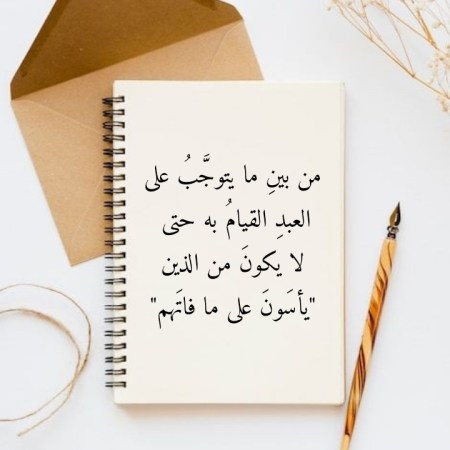 من بينِ ما يتوجَّبُ على
العبدِ القيامُ به حتى
لا يكونَ من الذين
"يأسَونَ على ما فاتَهم"